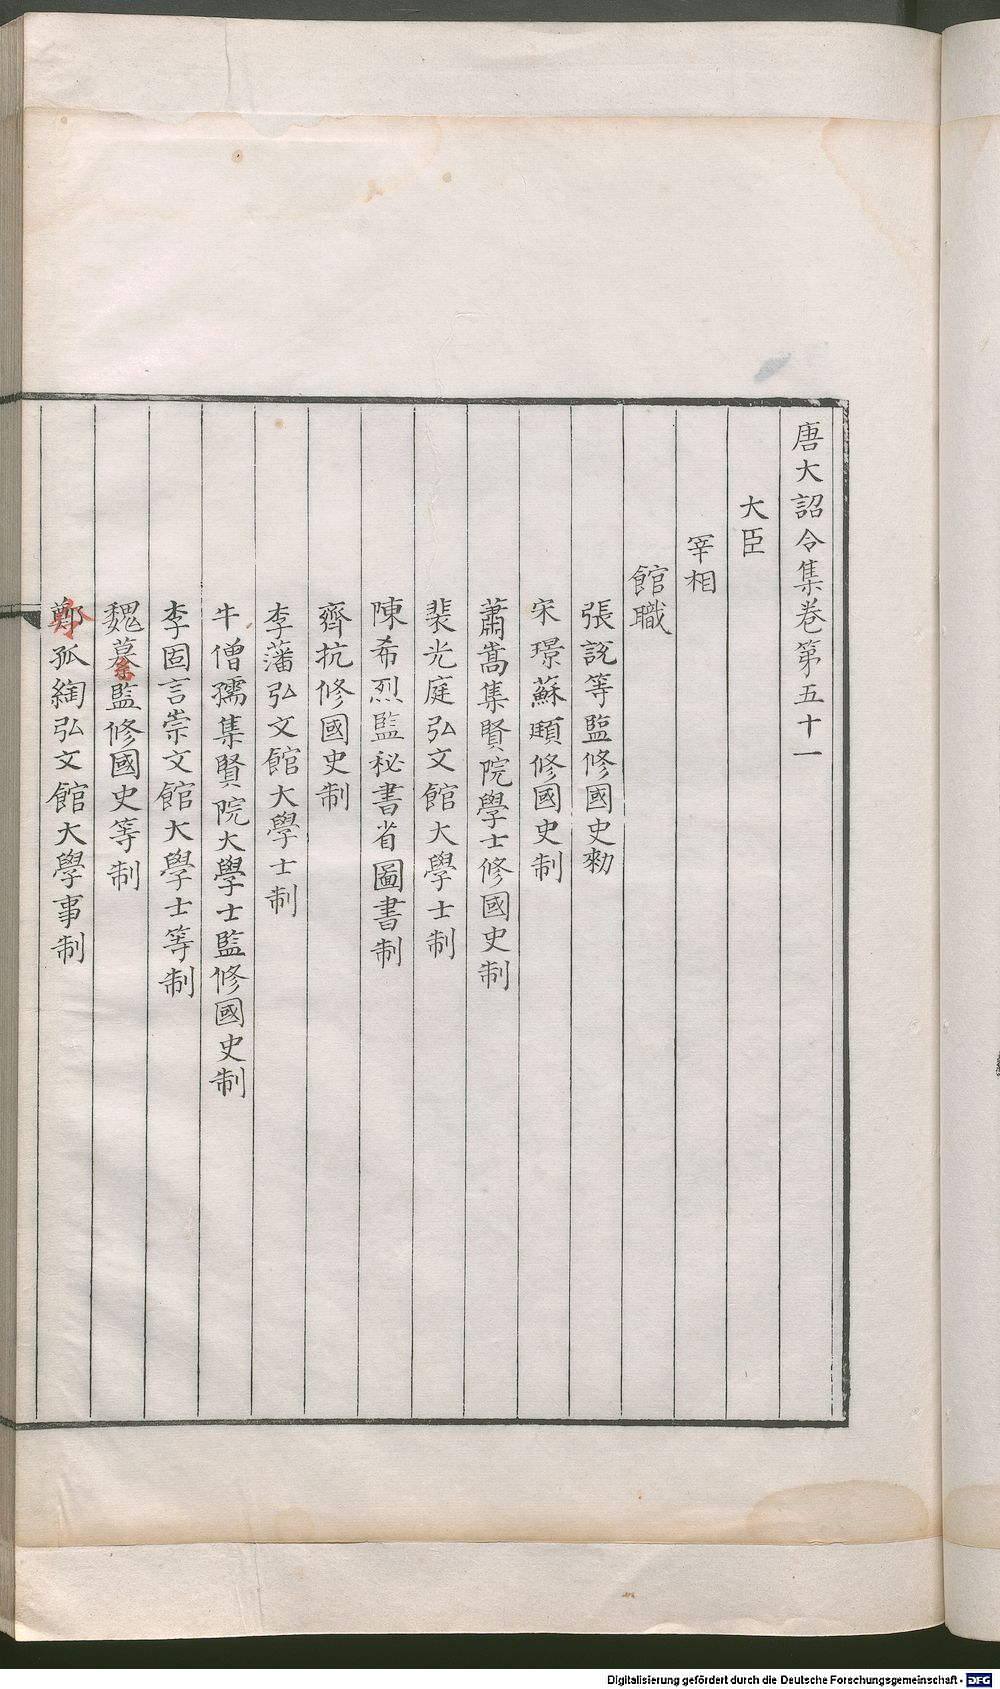 唐大詔令集卷第五十一
大臣
宰相
館職
張說等監修國史勑
宋璟蘇頲修國史制
蕭嵩集賢院學士修國史制
裴光庭弘文館大學士制
陳希烈監秘書省圖書制
齊抗修國史制
李藩弘文館大學士制
牛僧孺集賢院大學士監修國史制
李固言崇文館大學士等制
魏暮監修國史等制
鄭孤綯弘文館大學事制
Digitalisierung gefördert durch die Deutsche Forschungsgemeinschaft - DFG